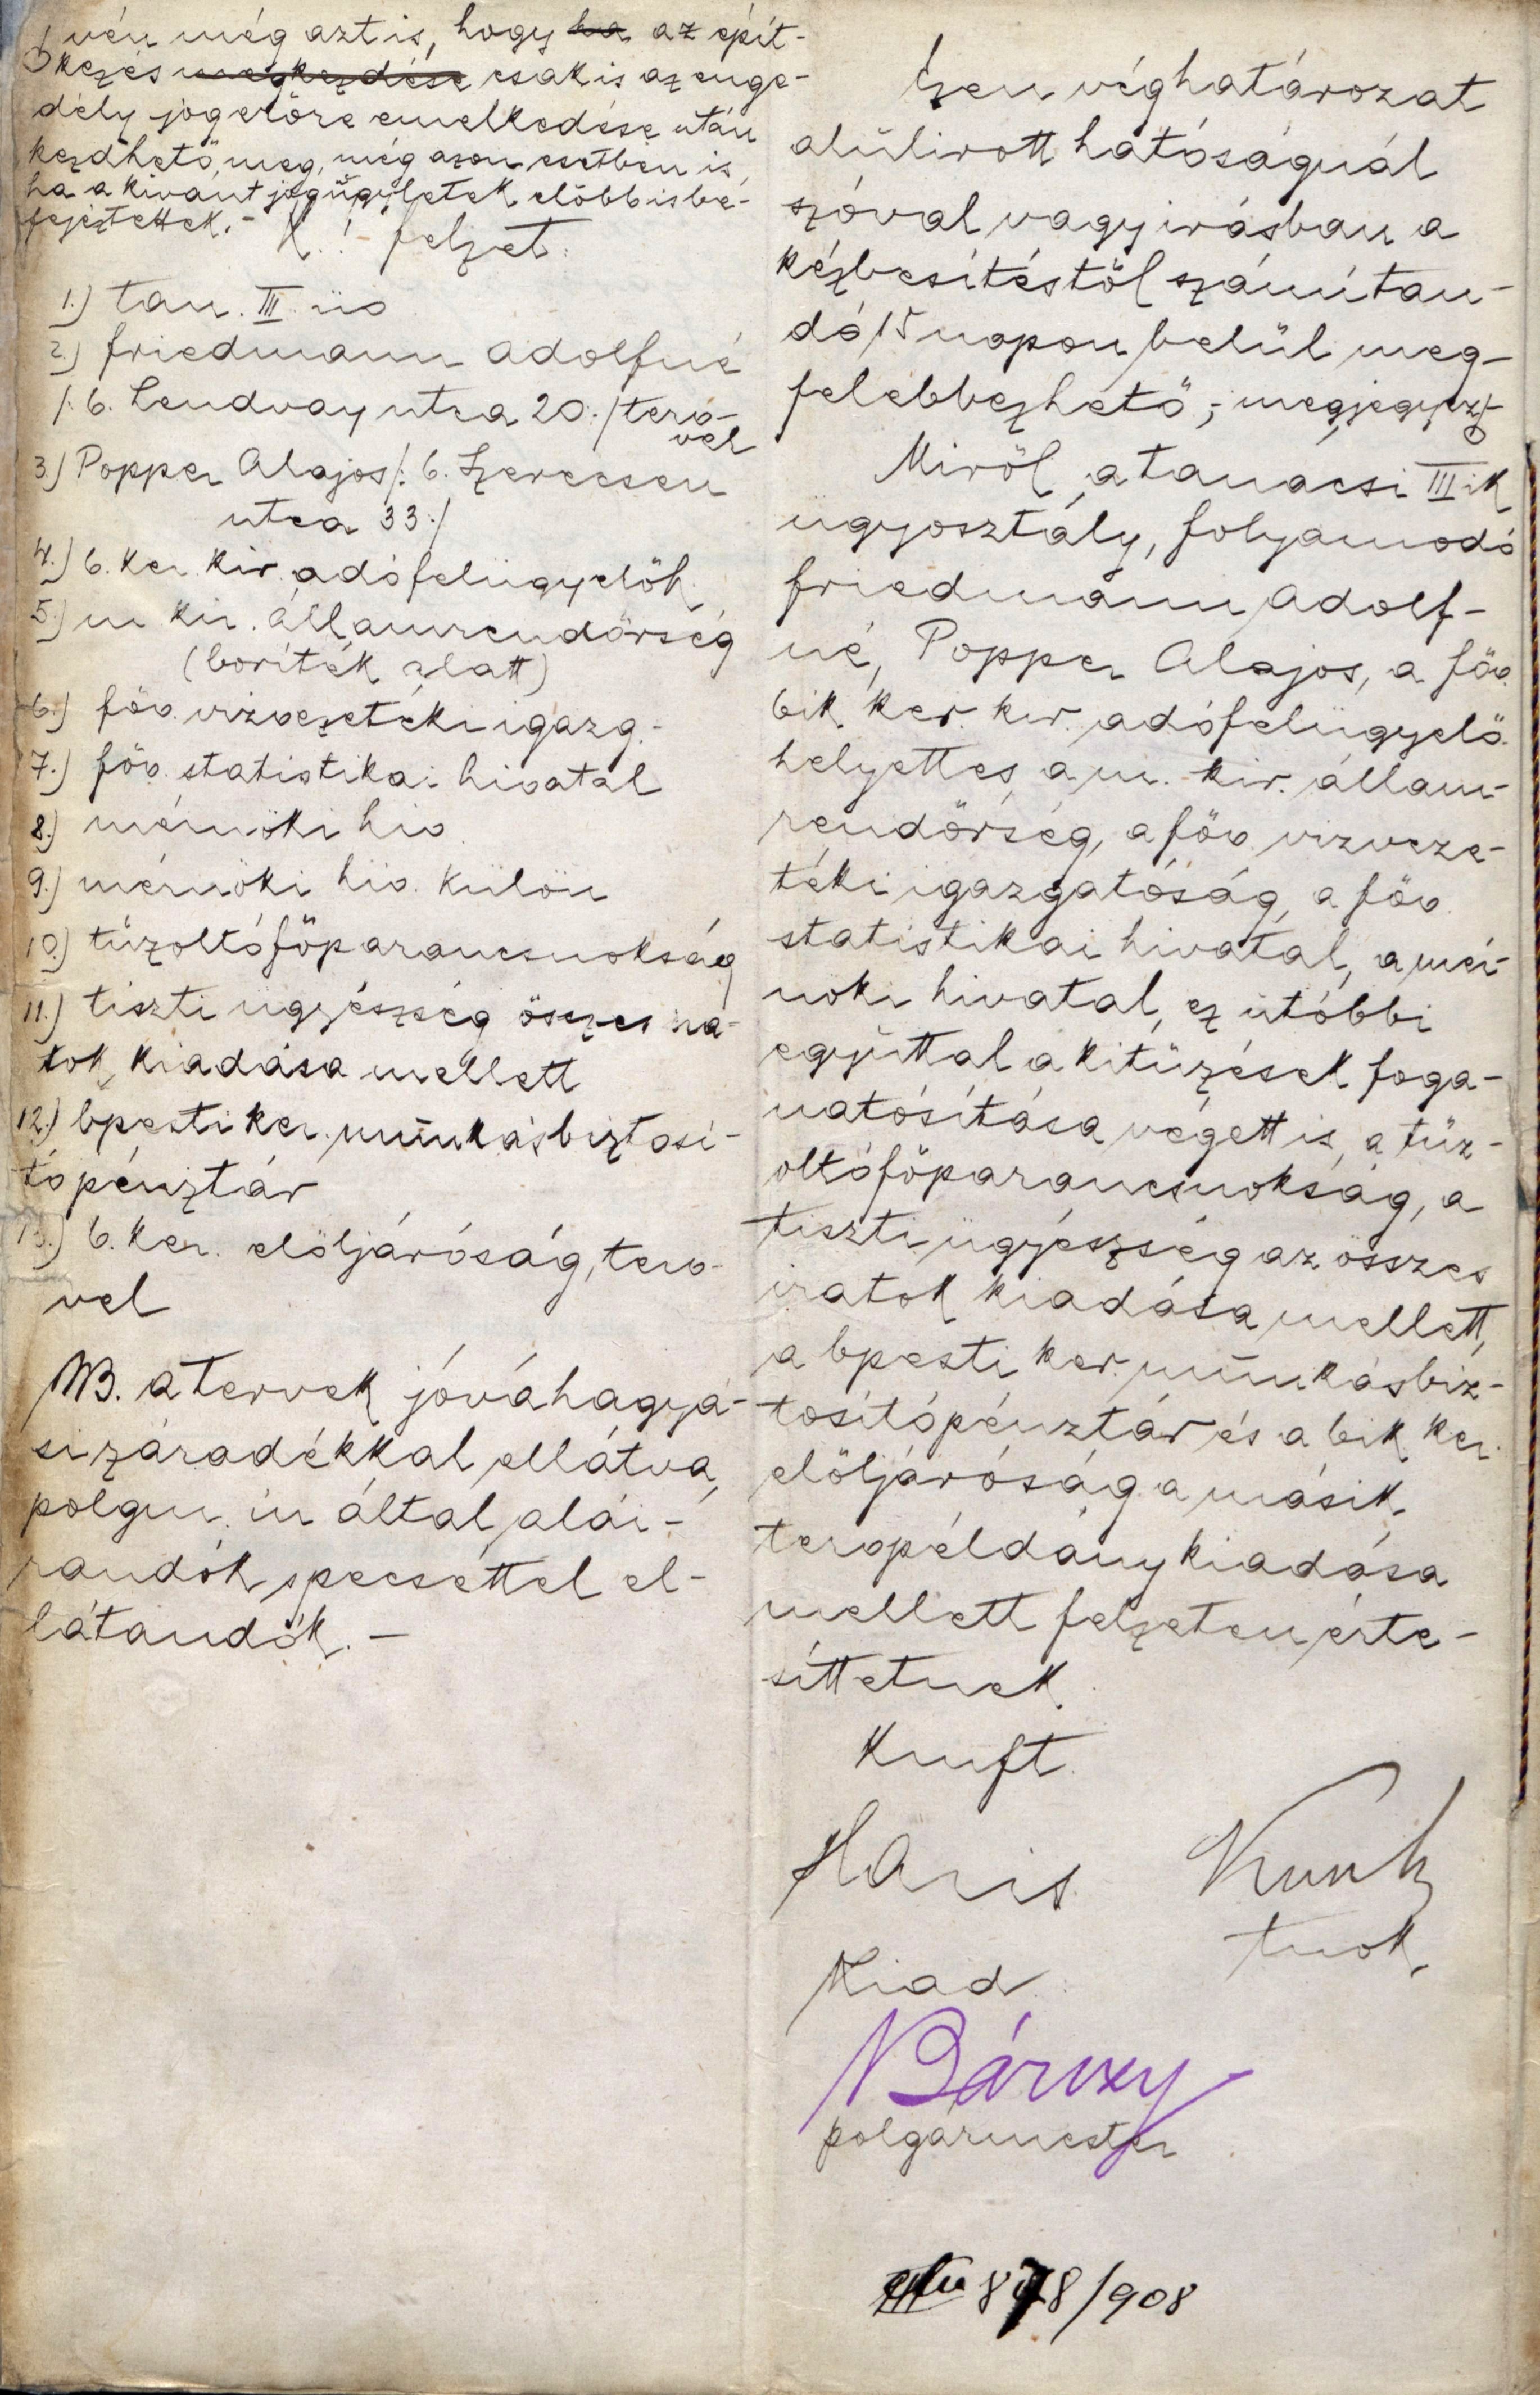 vén még azt is, hogy ha az épít-
kezés megkezdése csakis az enge-
dély jogerőre emelkedése után
kezdhető meg, még azon esetben is,
ha a kivánt jogügyletek előbb is be-
fejeztettek. -
felzet:
1.) tan. III. üo
2.) Friedmann Adolfné
/: 6. Lendvay utca 20. :/ terv-
vel
3.) Popper Alajos /: 6. Szerecsen
utca 33 :/
4.) 6. ker. kir. adófelügyelőh.
5.) m kir. államrendőrség
(boríték alatt)
6.) főv. vizvezetéki igazg. -
7.) főv. statistikai hivatal
8.) mérnöki hiv
9.) mérnöki hiv. külön
10.) tűzoltófőparancsnokság
11.) tiszti ügyészség összes ira-
tok kiadása mellett
12.) bpesti ker. munkásbiztosí-
tó pénztár
13.) 6. ker. elöljáróság, terv-
vel
NB. a tervek jóváhagyá-
si záradékkal ellátva,
polgm. úr által aláí-
randók s pecséttel el-
látandók. -
Ezen véghatározat
alúlirott hatóságnál
szóval vagy irásban a
kézbesítéstől számítan-
dó 15 napon belül meg-
felebbezhető; megjegyez-
Miről a tanácsi III ik
ügyosztály, folyamodó
Friedmann Adolf-
né, Popper Alajos, a főv.
6ik ker. kir. adófelügyelő
helyettes, a m. kir. állam-
rendőrség, a főv vizveze-
téki igazgatóság, a főv
statistikai hivatal, a mér-
nöki hivatal, ez utóbbi
egyúttal a kitűzések foga-
natósítása végett is, a tűz-
oltófőparancsnokság, a
tiszti ügyészség az összes
iratok kiadása mellett,
a bpesti ker. munkásbiz-
tosítópénztár és a 6ik ker.
elöljáróság a másik
tervpéldány kiadása
mellett felzeten érte-
síttetnek.
Kmft.
Haris
tnok.
Kiad
Bárczy
polgármester
878/908